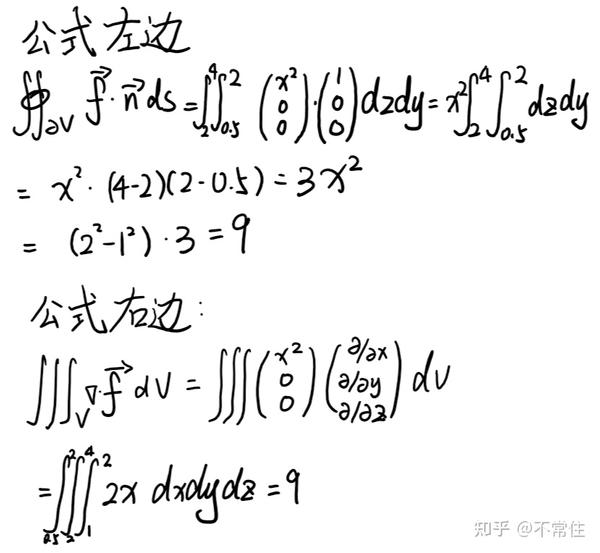 公式左边
∯_{∂V} \vec{f}·\vec{n} ds = ∫_2^4∫_{0.5}^2 (x² 0 0)·(1 0 0) dzdy = x²∫_2^4∫_{0.5}^2 dzdy
= x²·(4-2)(2-0.5) = 3x²
= (2²-1²)·3 = 9
公式右边:
∭_V ∇·\vec{f} dV = ∭ (x² 0 0) (∂/∂x ∂/∂y ∂/∂z) dv
= ∫_{0.5}^2∫_2^4∫_1^2 2x dxdydz = 9
知乎 @不常住